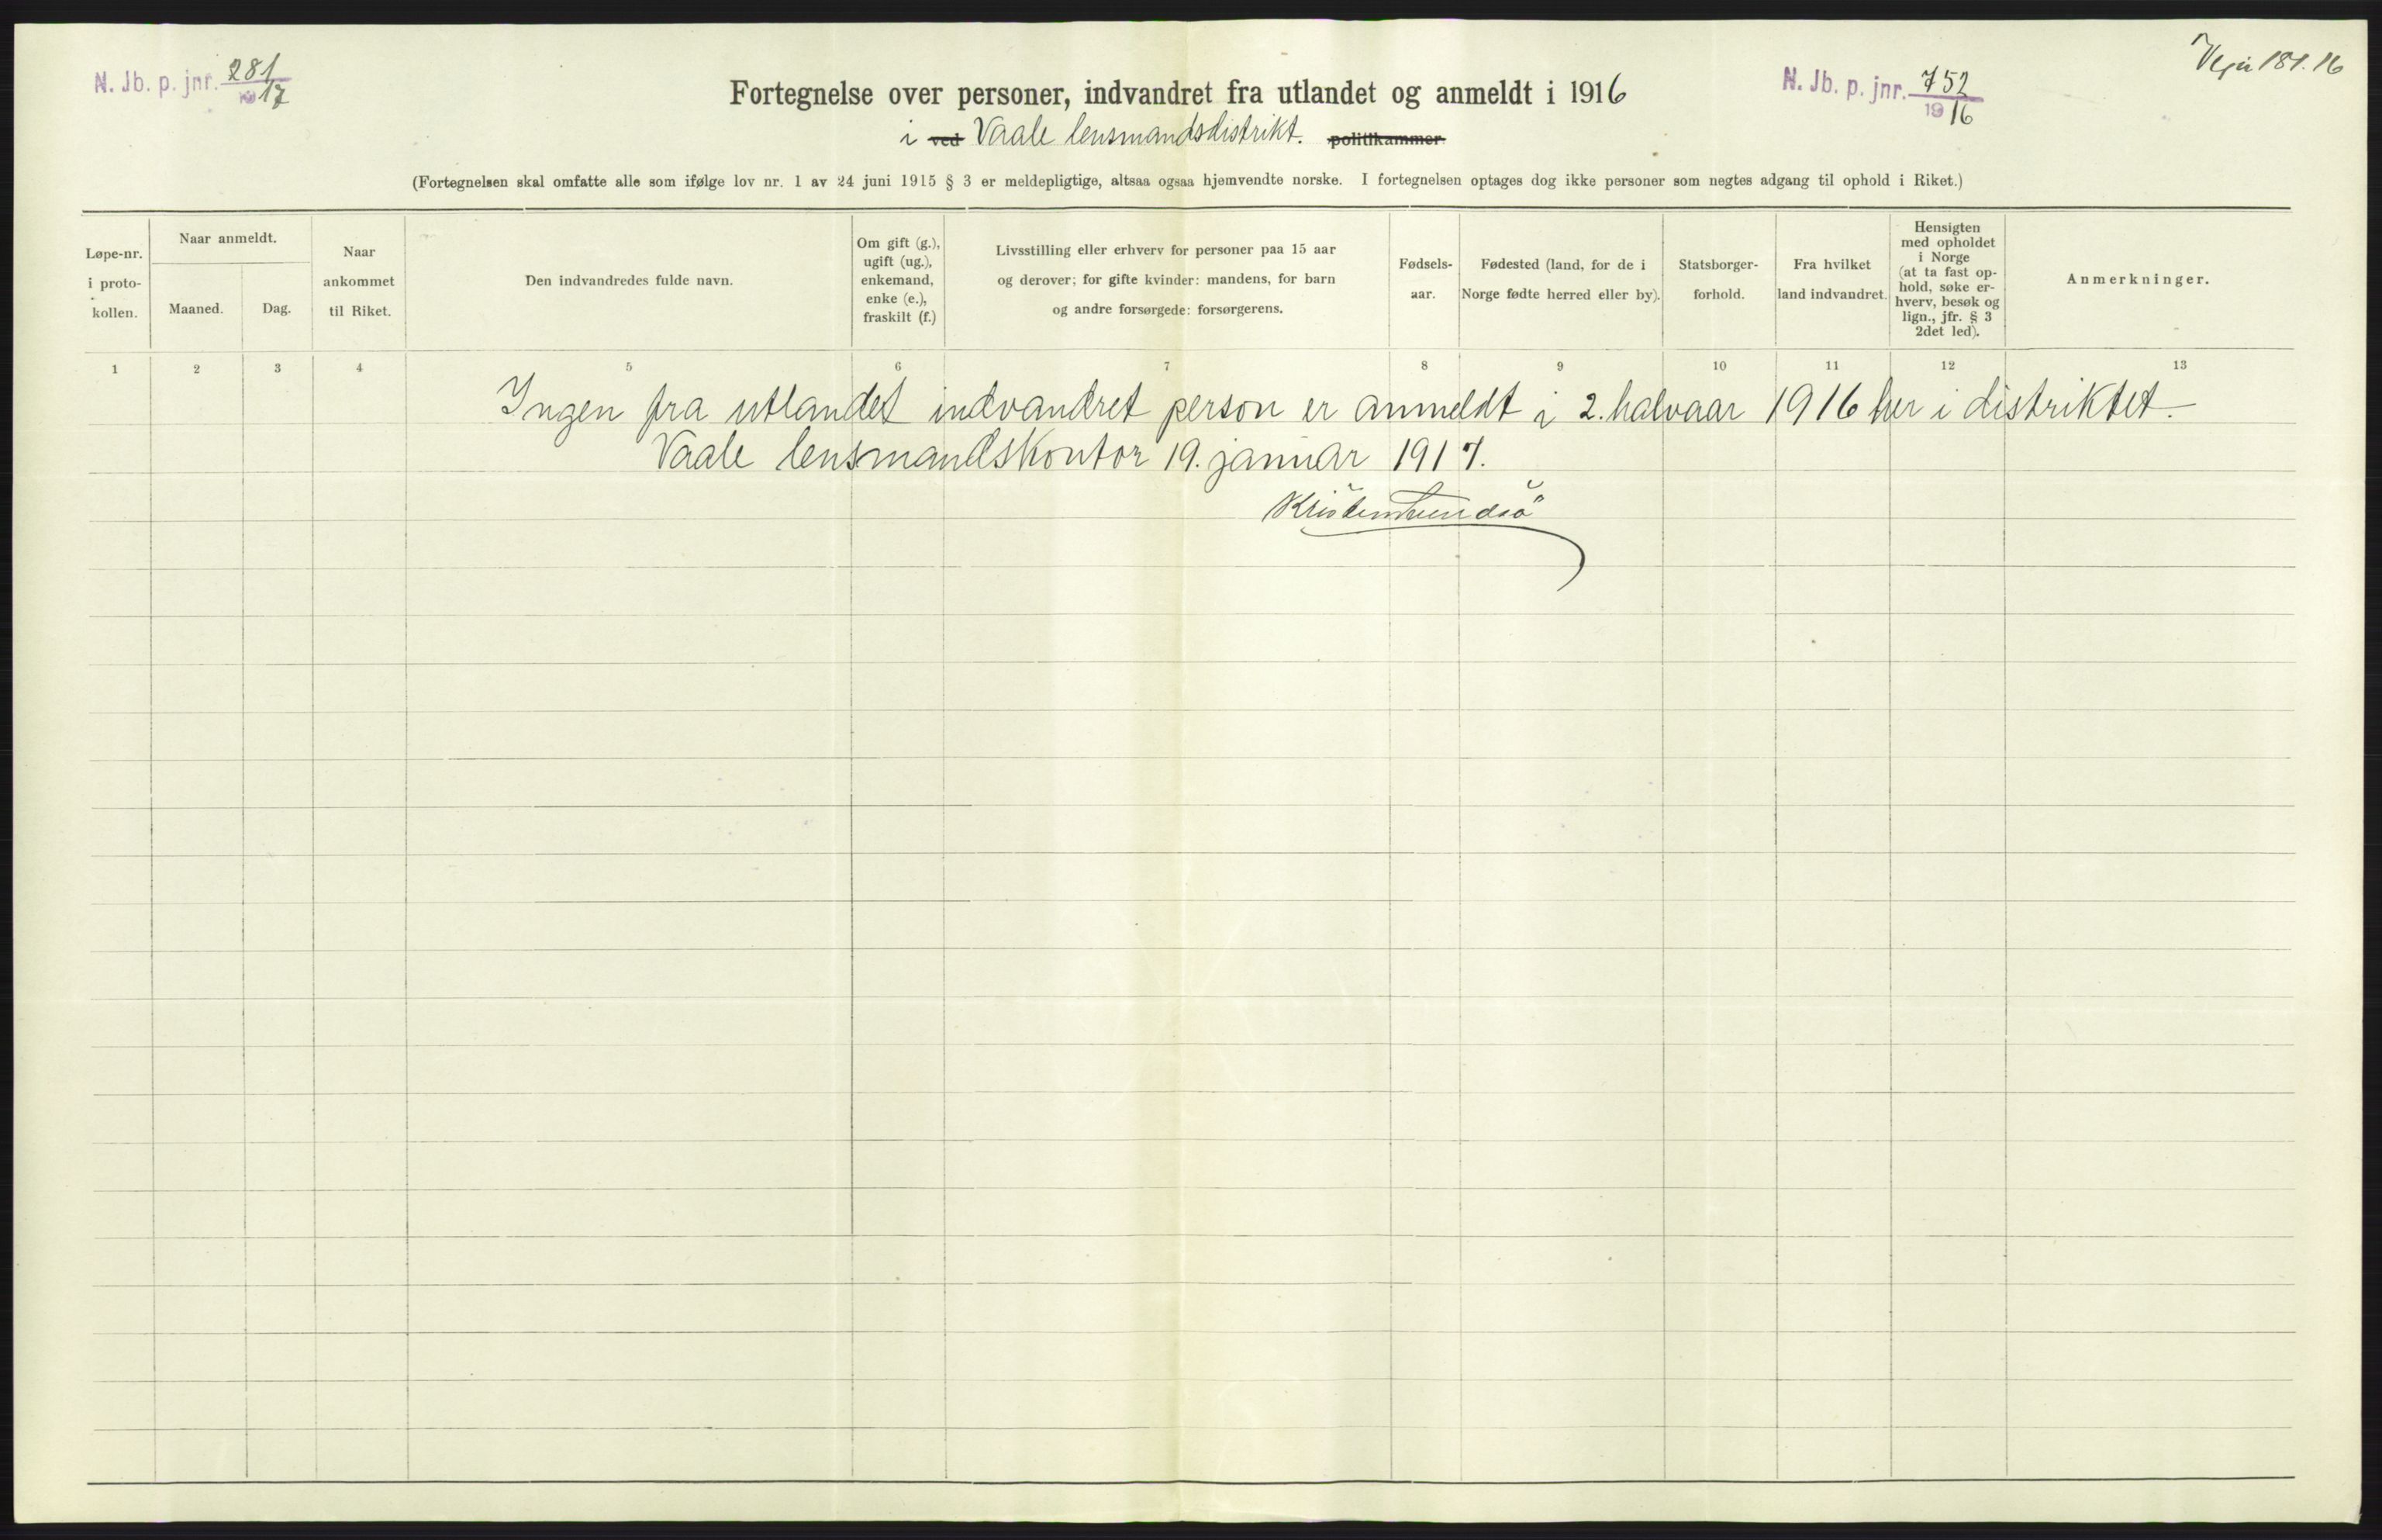 N. Jb. p. jnr. 281
1917
Fortegnelse over personer, indvandret fra utlandet og anmeldt i 1916
i ved Vaale lensmandsdistrikt. politikammer
N. Jb. p. jnr. 752
1916
181.16
(Fortegnelsen skal omfatte alle som ifølge lov nr. 1 av 24 juni 1915 § 3 er meldepligtige, altsaa ogsaa hjemvendte norske. I fortegnelsen optages dog ikke personer som negtes adgang til ophold i Riket.)
Løpe-nr.
i proto-
kollen.
Naar anmeldt.
Maaned.
Dag.
Naar
ankommet
til Riket.
Den indvandredes fulde navn.
Om gift (g.),
ugift (ug.),
enkemand,
enke (e.),
fraskilt (f.)
Livsstilling eller erhverv for personer paa 15 aar
og derover; for gifte kvinder: mandens, for barn
og andre forsørgede: forsørgerens.
Fødsels-
aar.
Fødested (land, for de i
Norge fødte herred eller by).
Statsborger-
forhold.
Fra hvilket
land indvandret.
Hensigten
med opholdet
i Norge
(at ta fast op-
hold, søke er-
hverv, besøk og
lign., jfr. § 3
2det led).
Anmerkninger.
1 2 3 4 5 6 7 8 9 10 11 12 13
Ingen fra utlandet indvandret person er anmeldt i 2. halvaar 1916 her i distriktet.-
Vaale lensmandskontor 19. januar 1917.